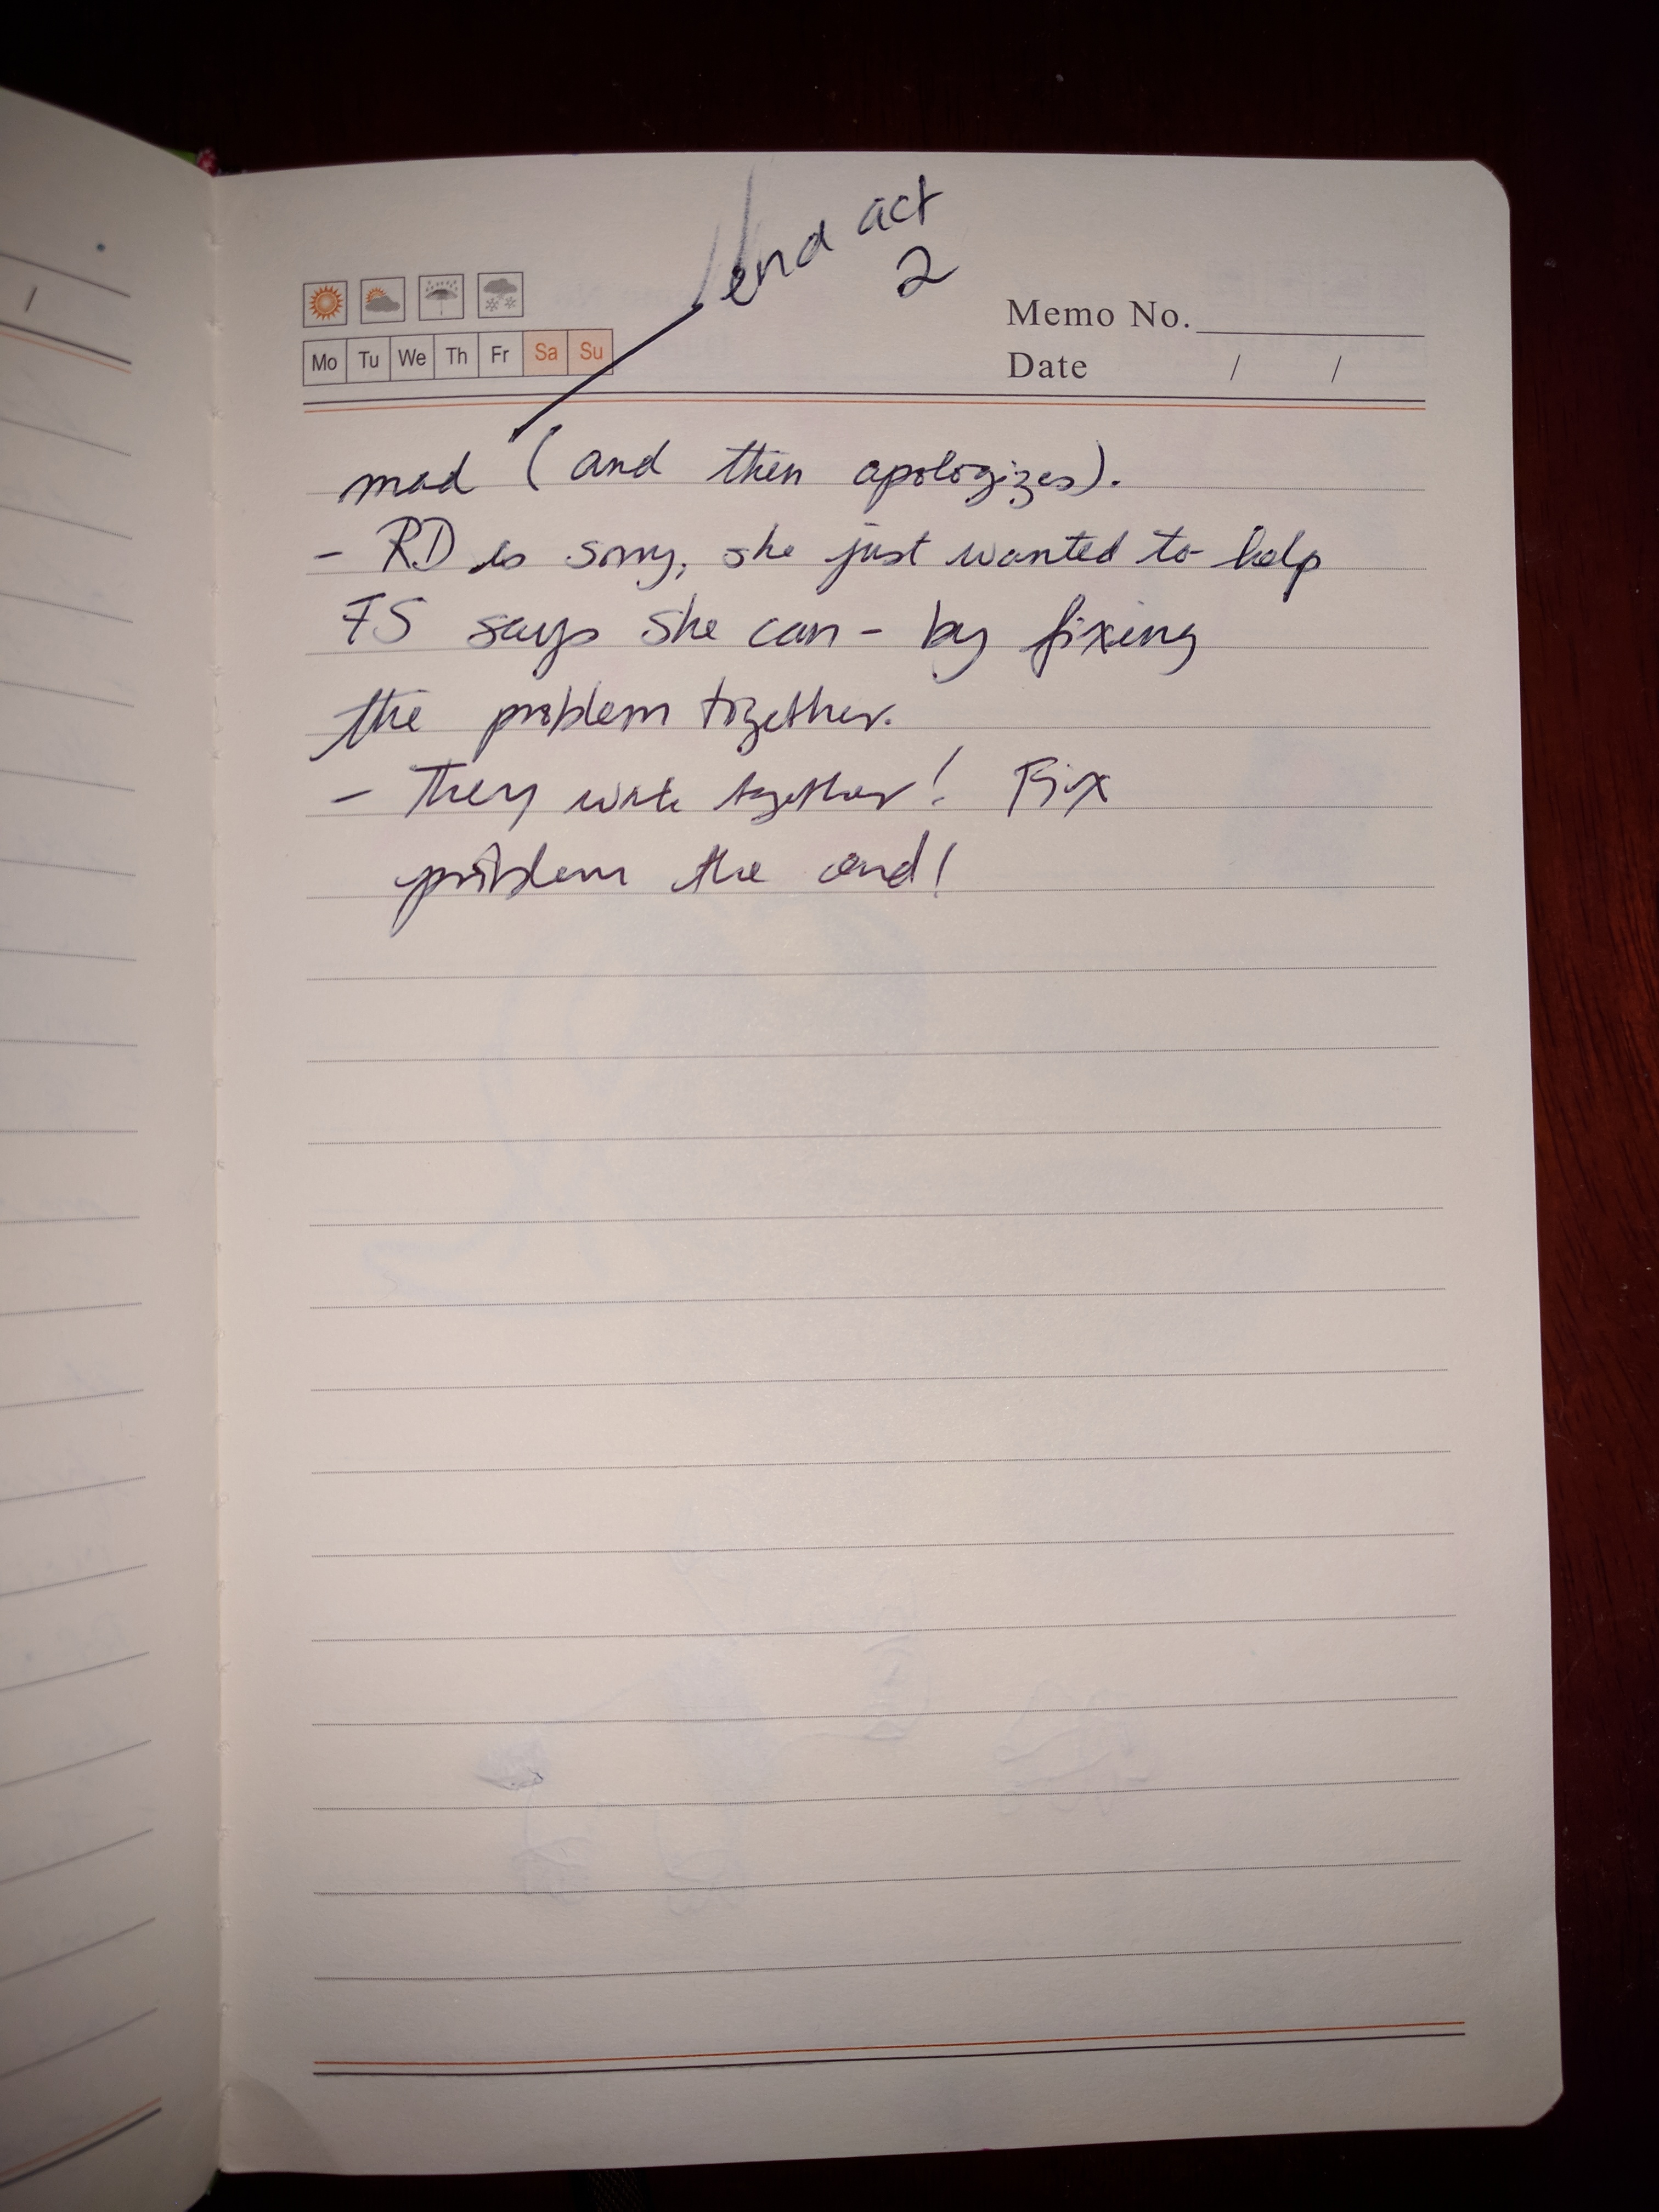 end act
2
Memo No.
Mo Tu We Th Fr Sa Su
Date / /
mad (and then apologizes).
- RD is sorry, she just wanted to help
FS says she can - by fixing
the problem together.
- They work together! Fix
problem the end!